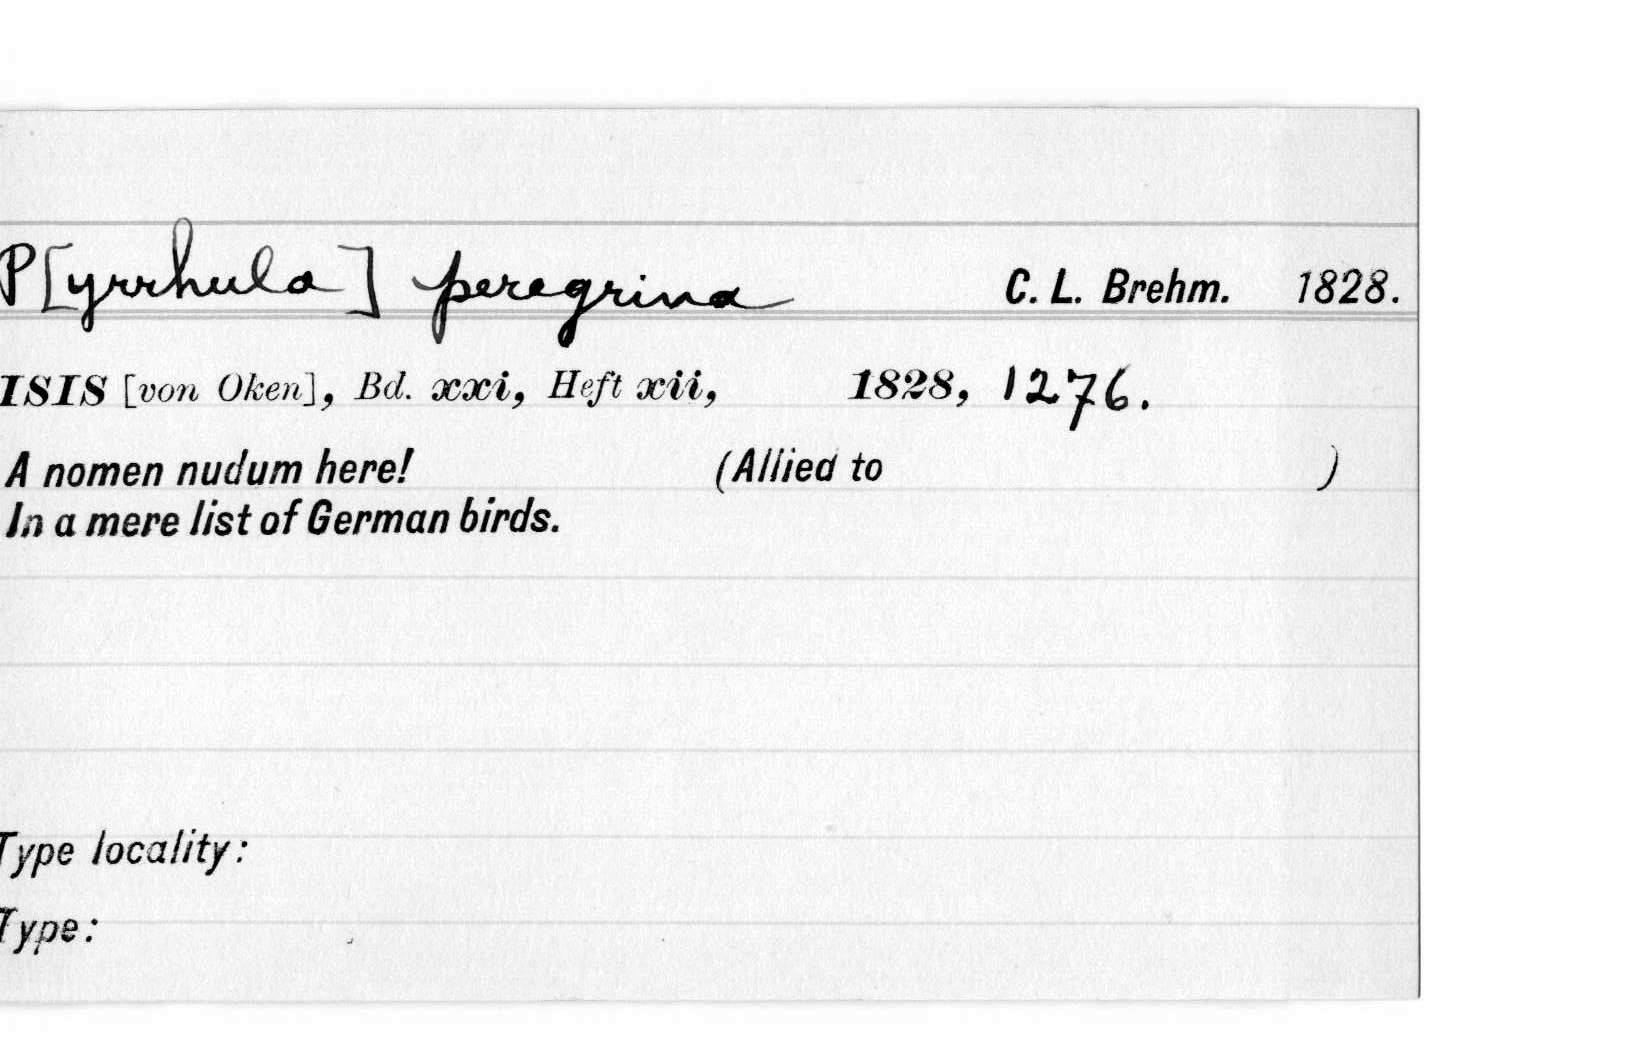 P[yrrhula] peregrina C. L. Brehm. 1828.
ISIS [von Oken], Bd. xxi, Heft xii, 1828, 1276.
A nomen nudum here! (Allied to )
In a mere list of German birds.
Type locality:
Type: